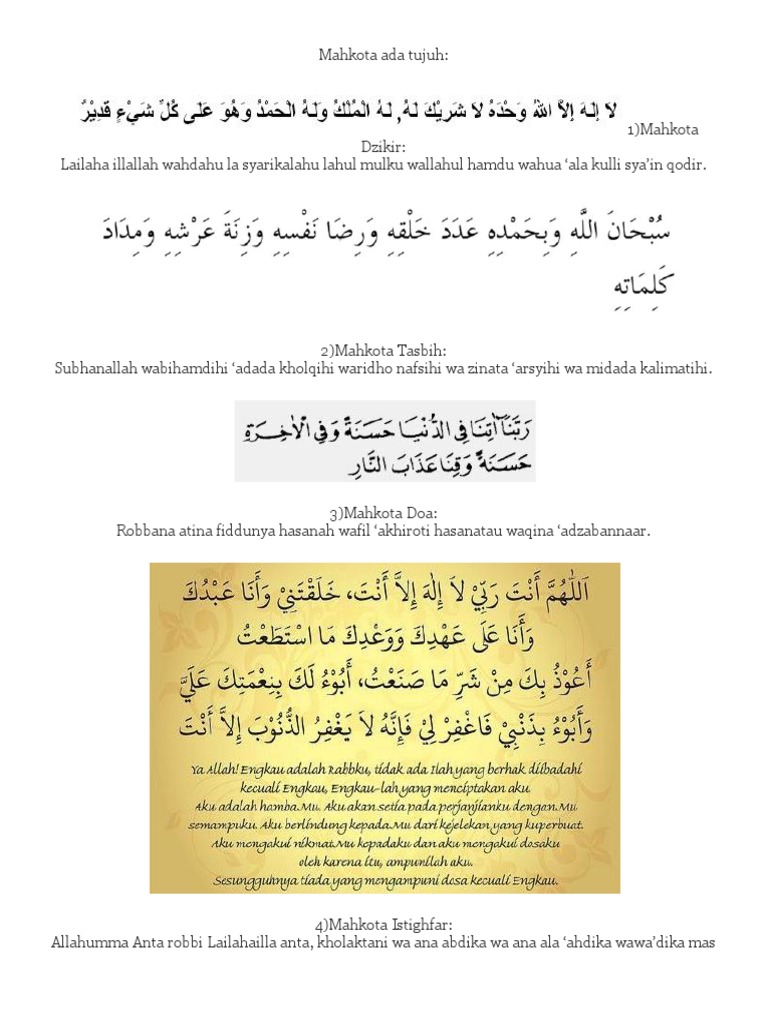 Mahkota ada tujuh:
لاَ إِلَهَ إِلاَّ اللهُ وَحْدَهُ لاَ شَرِيْكَ لَهُ, لَهُ الْمُلْكُ وَلَهُ الْحَمْدُ وَهُوَ عَلَى كُلِّ شَيْءٍ قَدِيْرٌ
1)Mahkota
Dzikir:
Lailaha illallah wahdahu la syarikalahu lahul mulku wallahul hamdu wahua ‘ala kulli sya’in qodir.
سُبْحَانَ اللَّهِ وَبِحَمْدِهِ عَدَدَ خَلْقِهِ وَرِضَا نَفْسِهِ وَزِنَةَ عَرْشِهِ وَمِدَادَ
كَلِمَاتِهِ
2)Mahkota Tasbih:
Subhanallah wabihamdihi ‘adada kholqihi waridho nafsihi wa zinata ‘arsyihi wa midada kalimatihi.
رَبَّنَآ اٰتِنَا فِي الدُّنْيَا حَسَنَةً وَفِي الْاٰخِرَةِ
حَسَنَةً وَقِنَا عَذَابَ النَّارِ
3)Mahkota Doa:
Robbana atina fiddunya hasanah wafil ‘akhiroti hasanatau waqina ‘adzabannaar.
اَللّٰهُمَّ أَنْتَ رَبِّيْ لاَ إِلٰهَ إِلاَّ أَنْتَ، خَلَقْتَنِيْ وَأَنَا عَبْدُكَ
وَأَنَا عَلَى عَهْدِكَ وَوَعْدِكَ مَا اسْتَطَعْتُ
أَعُوْذُ بِكَ مِنْ شَرِّ مَا صَنَعْتُ، أَبُوْءُ لَكَ بِنِعْمَتِكَ عَلَيَّ
وَأَبُوْءُ بِذَنْبِيْ فَاغْفِرْ لِيْ فَإِنَّهُ لاَ يَغْفِرُ الذُّنُوْبَ إِلاَّ أَنْتَ
Ya Allah! Engkau adalah Rabbku, tidak ada Ilah yang berhak diibadahi
kecuali Engkau, Engkau-lah yang menciptakan aku.
Aku adalah hamba.Mu. Aku akan setia pada perjanjianku dengan.Mu
semampuku. Aku berlindung kepada.Mu dari kejelekan yang kuperbuat.
Aku mengakui nikmat.Mu kepadaku dan aku mengakui dosaku
oleh karena itu, ampunilah aku.
Sesungguhnya tiada yang mengampuni dosa kecuali Engkau.
4)Mahkota Istighfar:
Allahumma Anta robbi Lailahailla anta, kholaktani wa ana abdika wa ana ala ‘ahdika wawa’dika mas